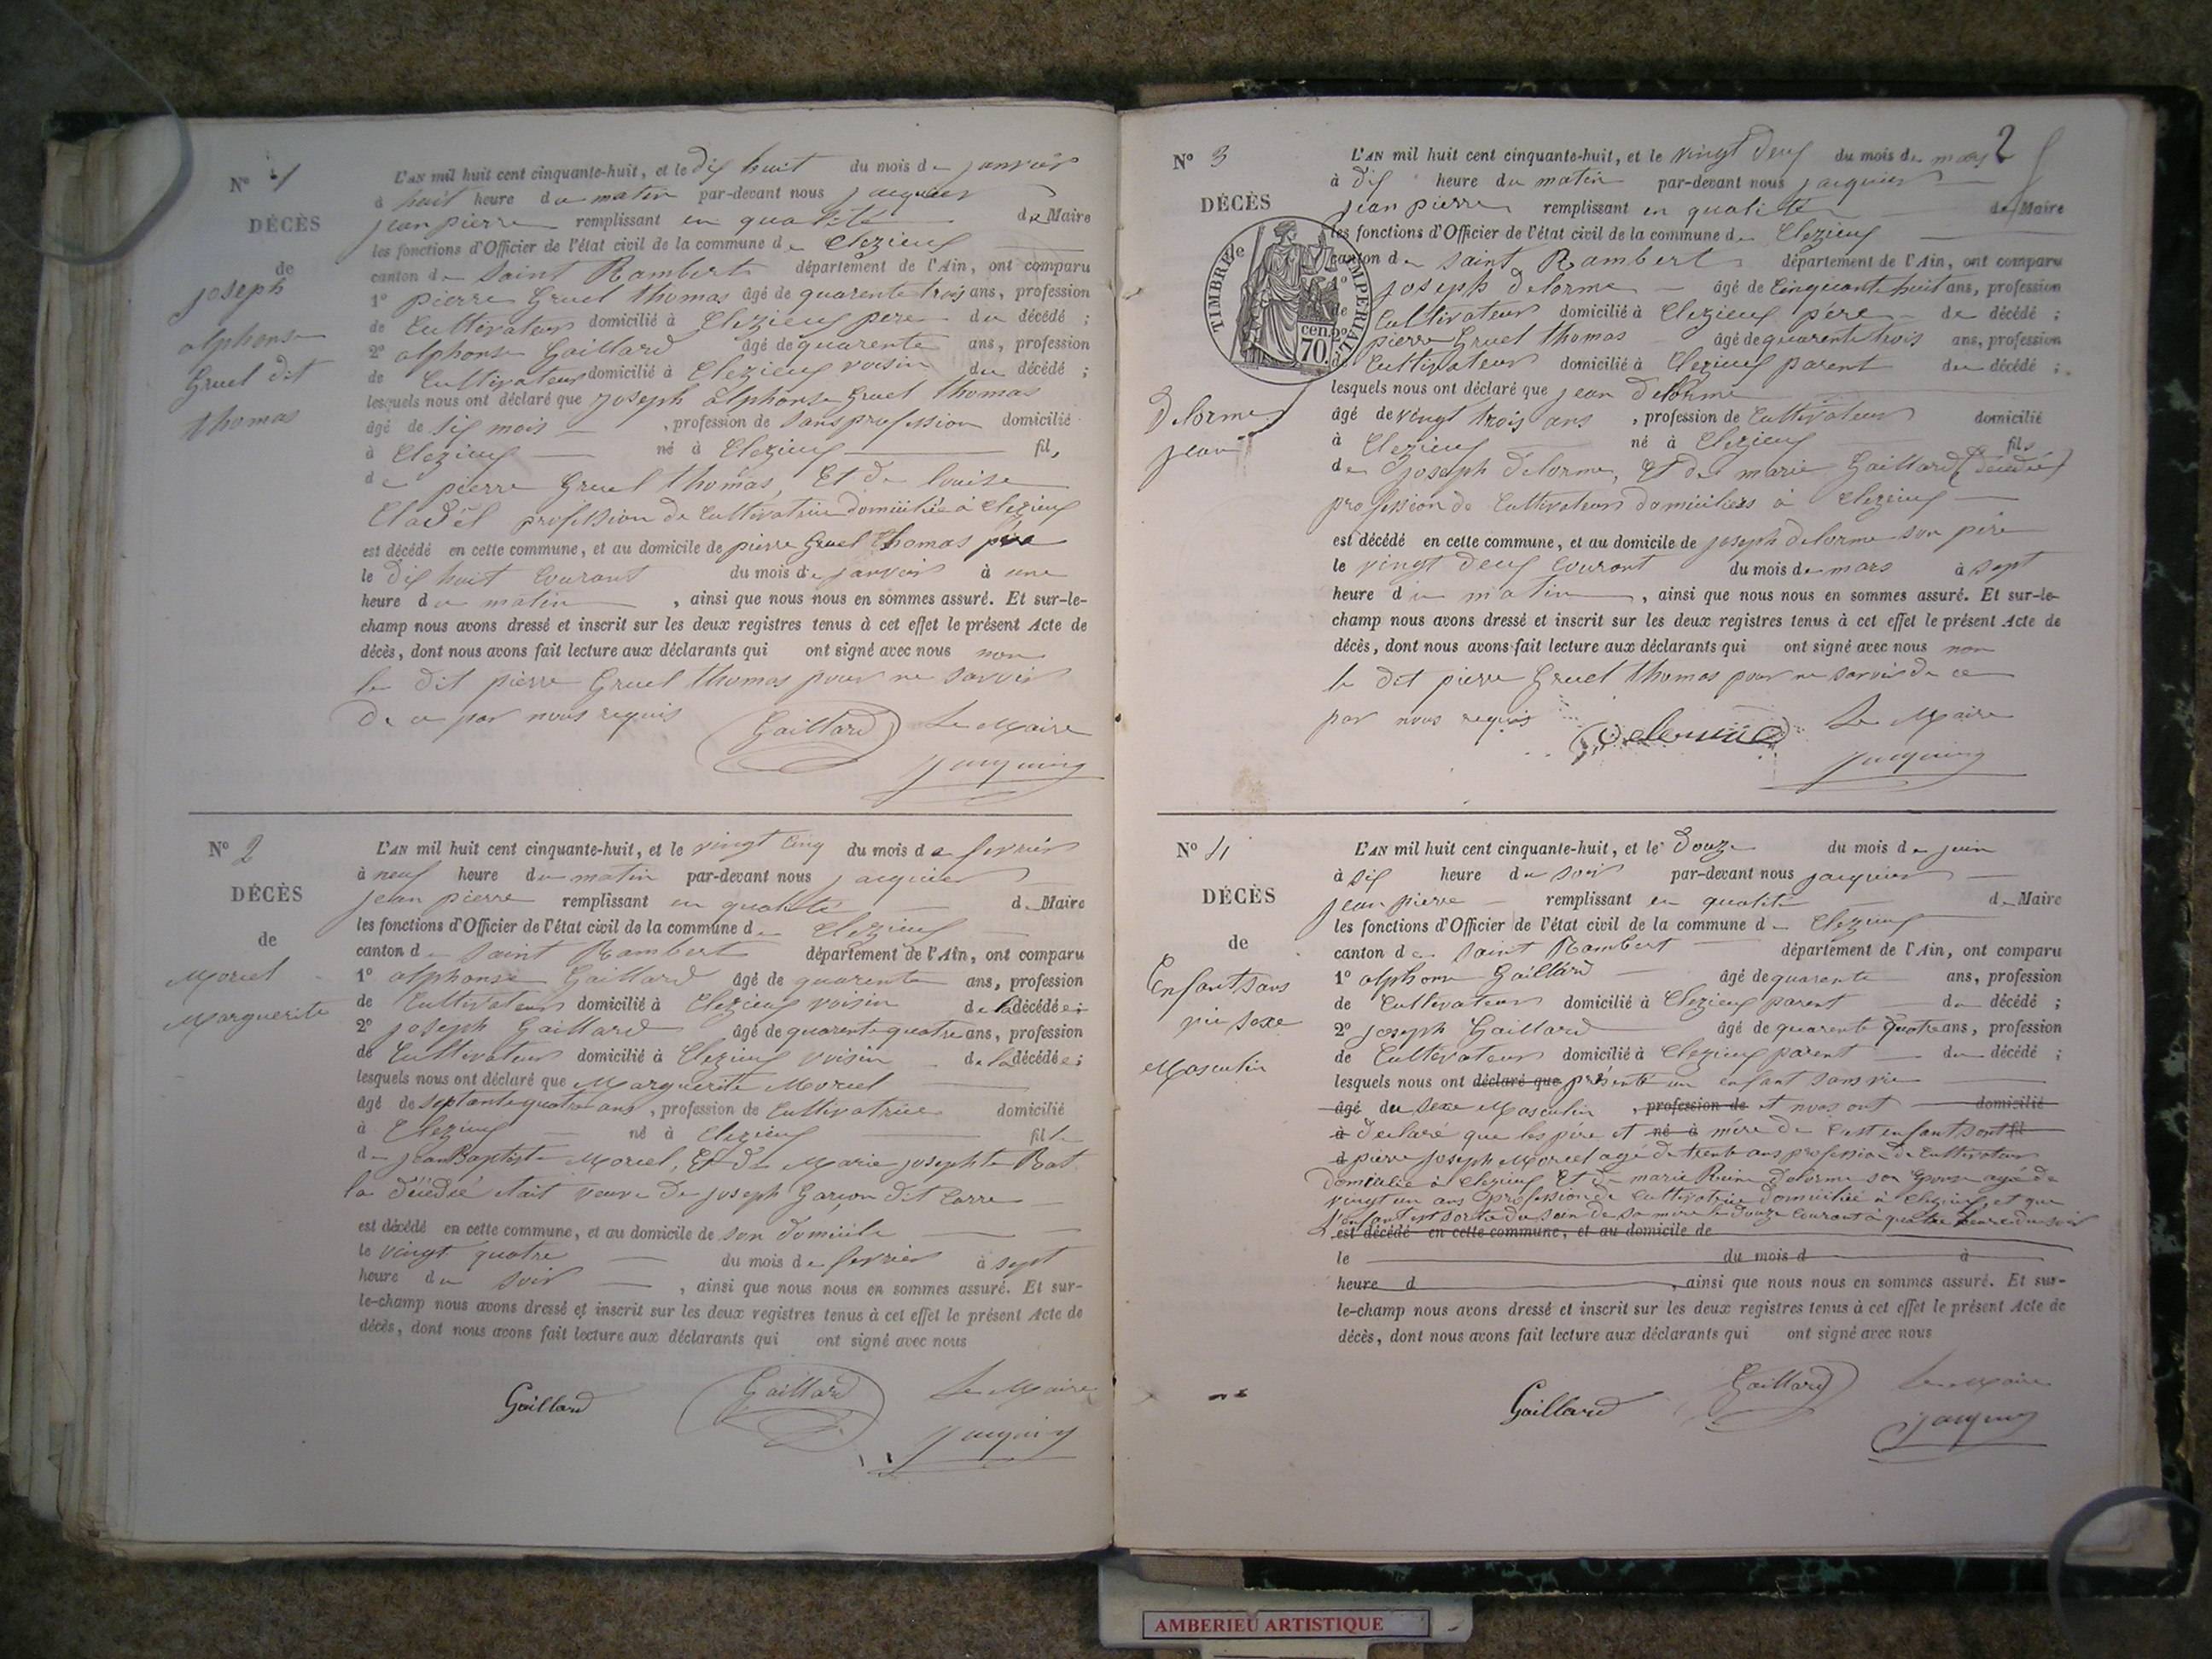 N° 1
DÉCÈS
de
joseph
alphonse
Gruel dit
thomas
L'AN mil huit cent cinquante-huit, et le dix huit du mois de janvier
à huit heure du matin par-devant nous jacquier
jean pierre remplissant en qualité de Maire
les fonctions d'Officier de l'état civil de la commune de Clezieux
canton de Saint Rambert département de l'Ain, ont comparu
1° pierre Gruel thomas âgé de quarente trois ans, profession
de Cultivateur domicilié à Clezieux pere du décédé ;
2° alphonse Gaillard âgé de quarente ans, profession
de Cultivateur domicilié à Clezieux voisin du décédé ;
lesquels nous ont déclaré que joseph alphonse Gruel thomas
âgé de six mois , profession de sans profession domicilié
à Clezieux né à Clezieux fils
de pierre Gruel thomas, Et de louise
Cladel profession de Cultivatrice domiciliée à Clezieux
est décédé en cette commune, et au domicile de pierre Gruel thomas père
le dix huit courant du mois de janvier à une
heure du matin , ainsi que nous nous en sommes assuré. Et sur-le-
champ nous avons dressé et inscrit sur les deux registres tenus à cet effet le présent Acte de
décès, dont nous avons fait lecture aux déclarants qui ont signé avec nous non
le dit pierre Gruel thomas pour ne savoir
de ce par nous requis Gaillard Le Maire
Jacquier
N° 2
DÉCÈS
de
Morcel
Marguerite
L'AN mil huit cent cinquante-huit, et le vingt cinq du mois de fevrier
à neuf heure du matin par-devant nous jacquier
jean pierre remplissant en qualité de Maire
les fonctions d'Officier de l'état civil de la commune de Clezieux
canton de Saint Rambert département de l'Ain, ont comparu
1° alphonse Gaillard âgé de quarente ans, profession
de Cultivateur domicilié à Clezieux voisin de la décédée ;
2° joseph Gaillard âgé de quarente quatre ans, profession
de Cultivateur domicilié à Clezieux voisin de la décédée ;
lesquels nous ont déclaré que Marguerite Morcel
âgé de septante quatre ans , profession de Cultivatrice domicilié
à Clezieux né à Clezieux fille
de jean Baptiste Morcel, Et de Marie josephte Bat
la décédée etait veuve de joseph Garçon dit Carre
est décédé en cette commune, et au domicile de son domicile
le vingt quatre du mois de fevrier à sept
heure du soir , ainsi que nous nous en sommes assuré. Et sur-
le-champ nous avons dressé et inscrit sur les deux registres tenus à cet effet le présent Acte de
décès, dont nous avons fait lecture aux déclarants qui ont signé avec nous
Gaillard Gaillard Le Maire
Jacquier
2
N° 3
DÉCÈS
TIMBRE IMPERIAL
70 cen.
Delorme
jean
L'AN mil huit cent cinquante-huit, et le vingt deux du mois de mars
à dix heure du matin par-devant nous jacquier
jean pierre remplissant en qualité de Maire
les fonctions d'Officier de l'état civil de la commune de Clezieux
canton de Saint Rambert département de l'Ain, ont comparu
joseph Delorme âgé de Cinquante huit ans, profession
de Cultivateur domicilié à Clezieux père du décédé ;
2° pierre Gruel thomas âgé de quarente trois ans, profession
Cultivateur domicilié à Clezieux parent du décédé ;
lesquels nous ont déclaré que jean Delorme
âgé de vingt trois ans , profession de Cultivateur domicilié
à Clezieux né à Clezieux fils
de joseph Delorme, Et de marie Gaillard (décédée)
profession de Cultivateurs domiciliers à Clezieux
est décédé en cette commune, et au domicile de joseph Delorme son père
le vingt deux courant du mois de mars à sept
heure du matin , ainsi que nous nous en sommes assuré. Et sur-le-
champ nous avons dressé et inscrit sur les deux registres tenus à cet effet le présent Acte de
décès, dont nous avons fait lecture aux déclarants qui ont signé avec nous non
le dit pierre Gruel thomas pour ne savoir de ce
par nous requis Delorme Le Maire
Jacquier
N° 4
DÉCÈS
de
Enfant sans
vie sexe
Masculin
L'AN mil huit cent cinquante-huit, et le Douze du mois de juin
à six heure du soir par-devant nous jacquier
jean pierre remplissant en qualité de Maire
les fonctions d'Officier de l'état civil de la commune de Clezieux
canton de Saint Rambert département de l'Ain, ont comparu
1° alphonse Gaillard âgé de quarente ans, profession
de Cultivateur domicilié à Clezieux parent du décédé ;
2° joseph Gaillard âgé de quarente quatre ans, profession
de Cultivateur domicilié à Clezieux parent du décédé ;
lesquels nous ont déclaré que présenté un enfant sans vie
âgé du sexe Masculin , profession de et nous ont domicilié
à declaré que les père et né à mère de cest enfant sont fil
d pierre joseph Morcel agé de trente ans profession de Cultivateur
domicilié à Clezieux Et de marie Reine Delorme son Epouse agé de
vingt un ans profession de Cultivatrice domiciliée à Clezieux et que
l'enfant est sortie du sein de sa mere le douze courant à quatre heure du soir
est décédé en cette commune, et au domicile de
le du mois d à
heure d , ainsi que nous nous en sommes assuré. Et sur-
le-champ nous avons dressé et inscrit sur les deux registres tenus à cet effet le présent Acte de
décès, dont nous avons fait lecture aux déclarants qui ont signé avec nous
Gaillard Gaillard Le Maire
Jacquier
AMBERIEU ARTISTIQUE